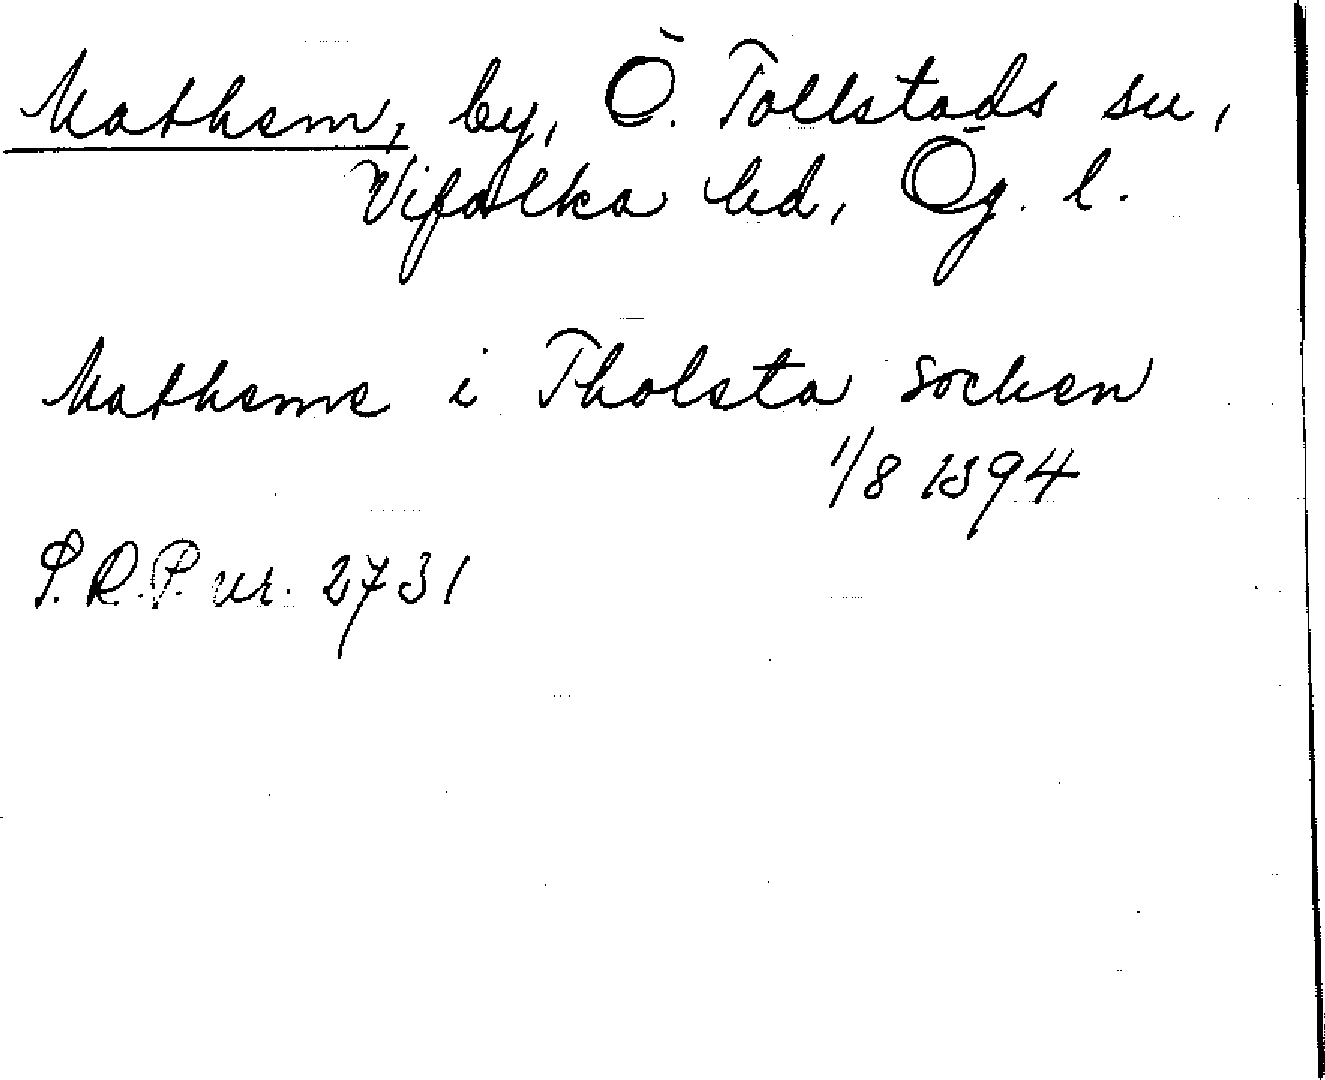 Mathem, by, Ö. Tollstads sn,
Vifolka hd, Ög. l.
Matheme i Tholsta Socken
1/8 1394
S.R.P. nr. 2731